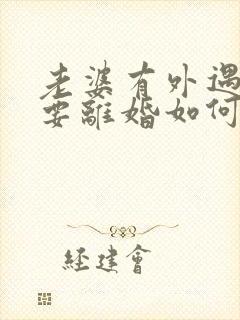 老婆有外遇
要離婚如何
經建會